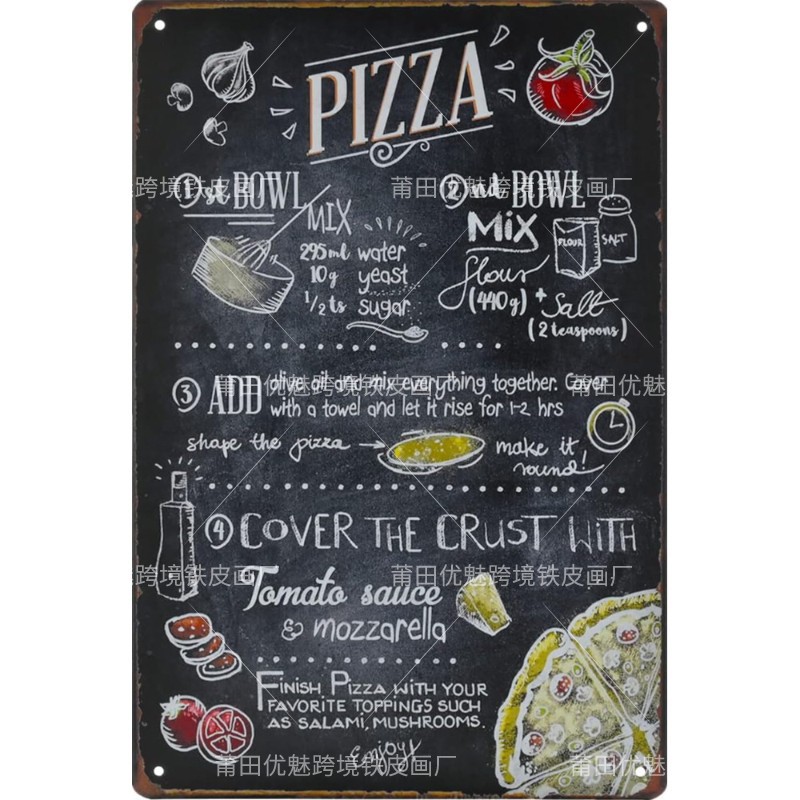 PIZZA
1st BOWL
MIX
295ml water
10g yeast
1/2 ts sugar
2nd BOWL
MiX
FLOUR
SALT
flour
(440g) + Salt
(2 teaspoons)
3 ADD olive oil and mix everything together. Cover
with a towel and let it rise for 1-2 hrs
shape the pizza → make it
round!
4 COVER THE CRUST WITH
Tomato sauce
& mozzarella
FINISH PIZZA WITH YOUR
FAVORITE TOPPINGS SUCH
AS SALAMI, MUSHROOMS.
Enjoy
跨境铁皮画厂
莆田优魅跨境铁皮画厂
莆田优魅跨境铁皮画厂
莆田优魅
跨境铁皮画厂
莆田优魅跨境铁皮画厂
莆田优魅跨境铁皮画厂
莆田优魅